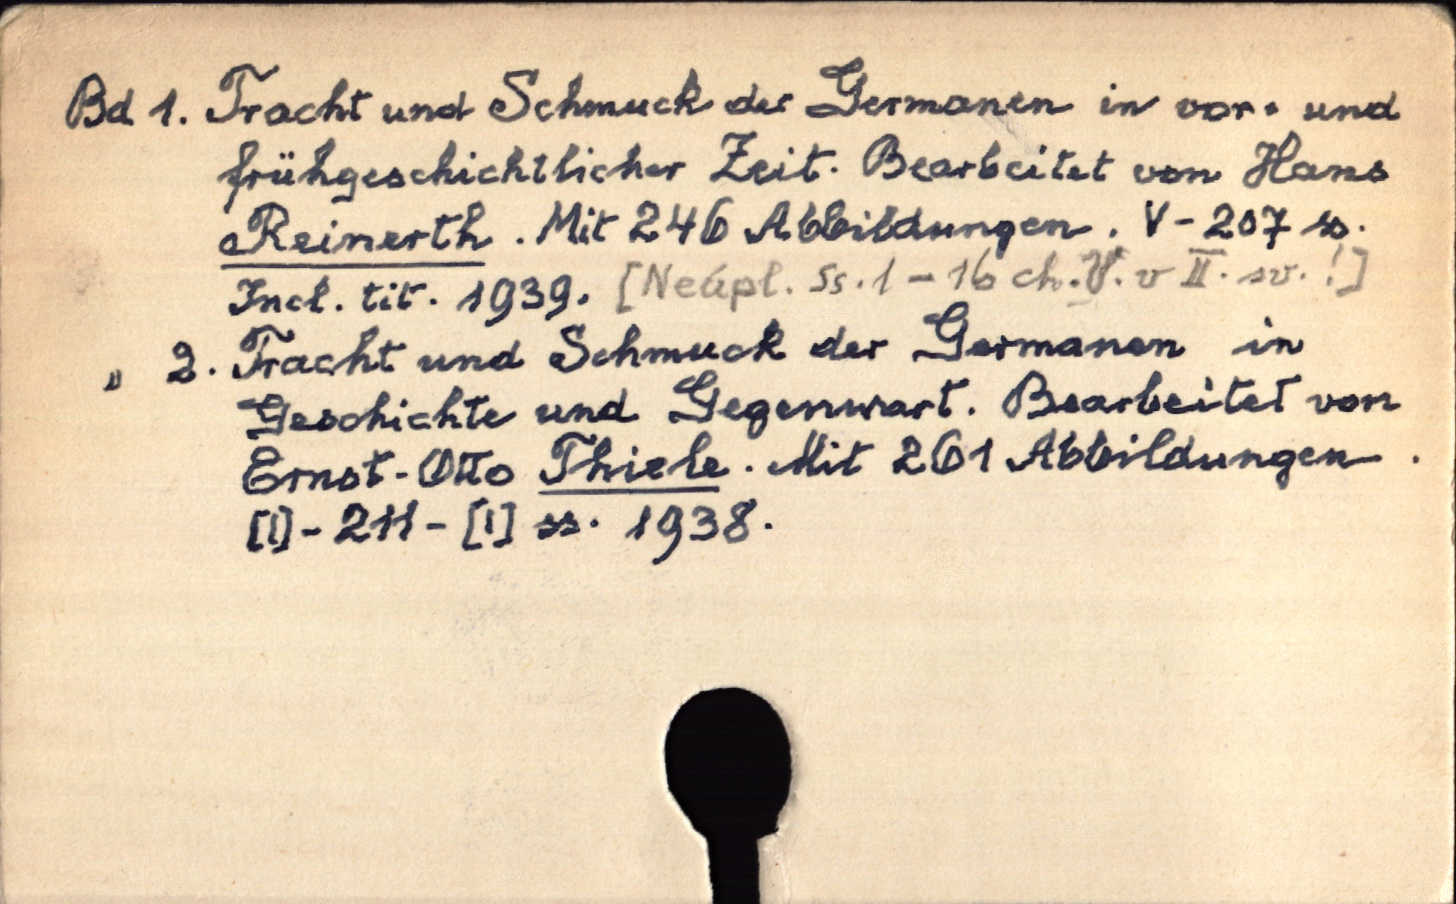 Bd 1. Tracht und Schmuck der Germanen in vor- und
frühgeschichtlicher Zeit. Bearbeitet von Hans
Reinerth. Mit 246 Abbildungen. V-207 ss.
Incl. tit. 1939. [Neúpl. Ss. 1-16 ch. v II. sv.!]
" 2. Tracht und Schmuck der Germanen in
Geschichte und Gegenwart. Bearbeitet von
Ernst-Otto Thiele. Mit 261 Abbildungen.
[1]-211-[1] ss. 1938.